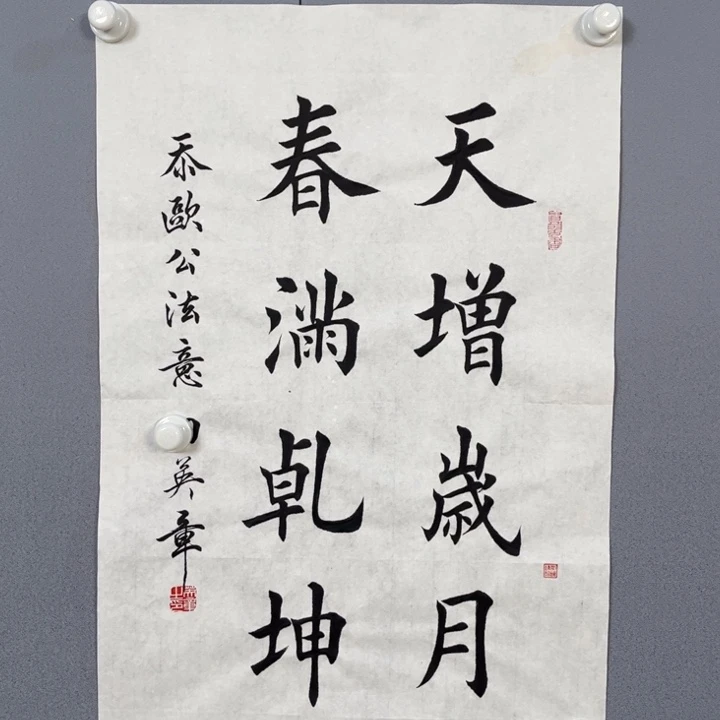 天增歲月
春滿乾坤
叅歐公法意 英章